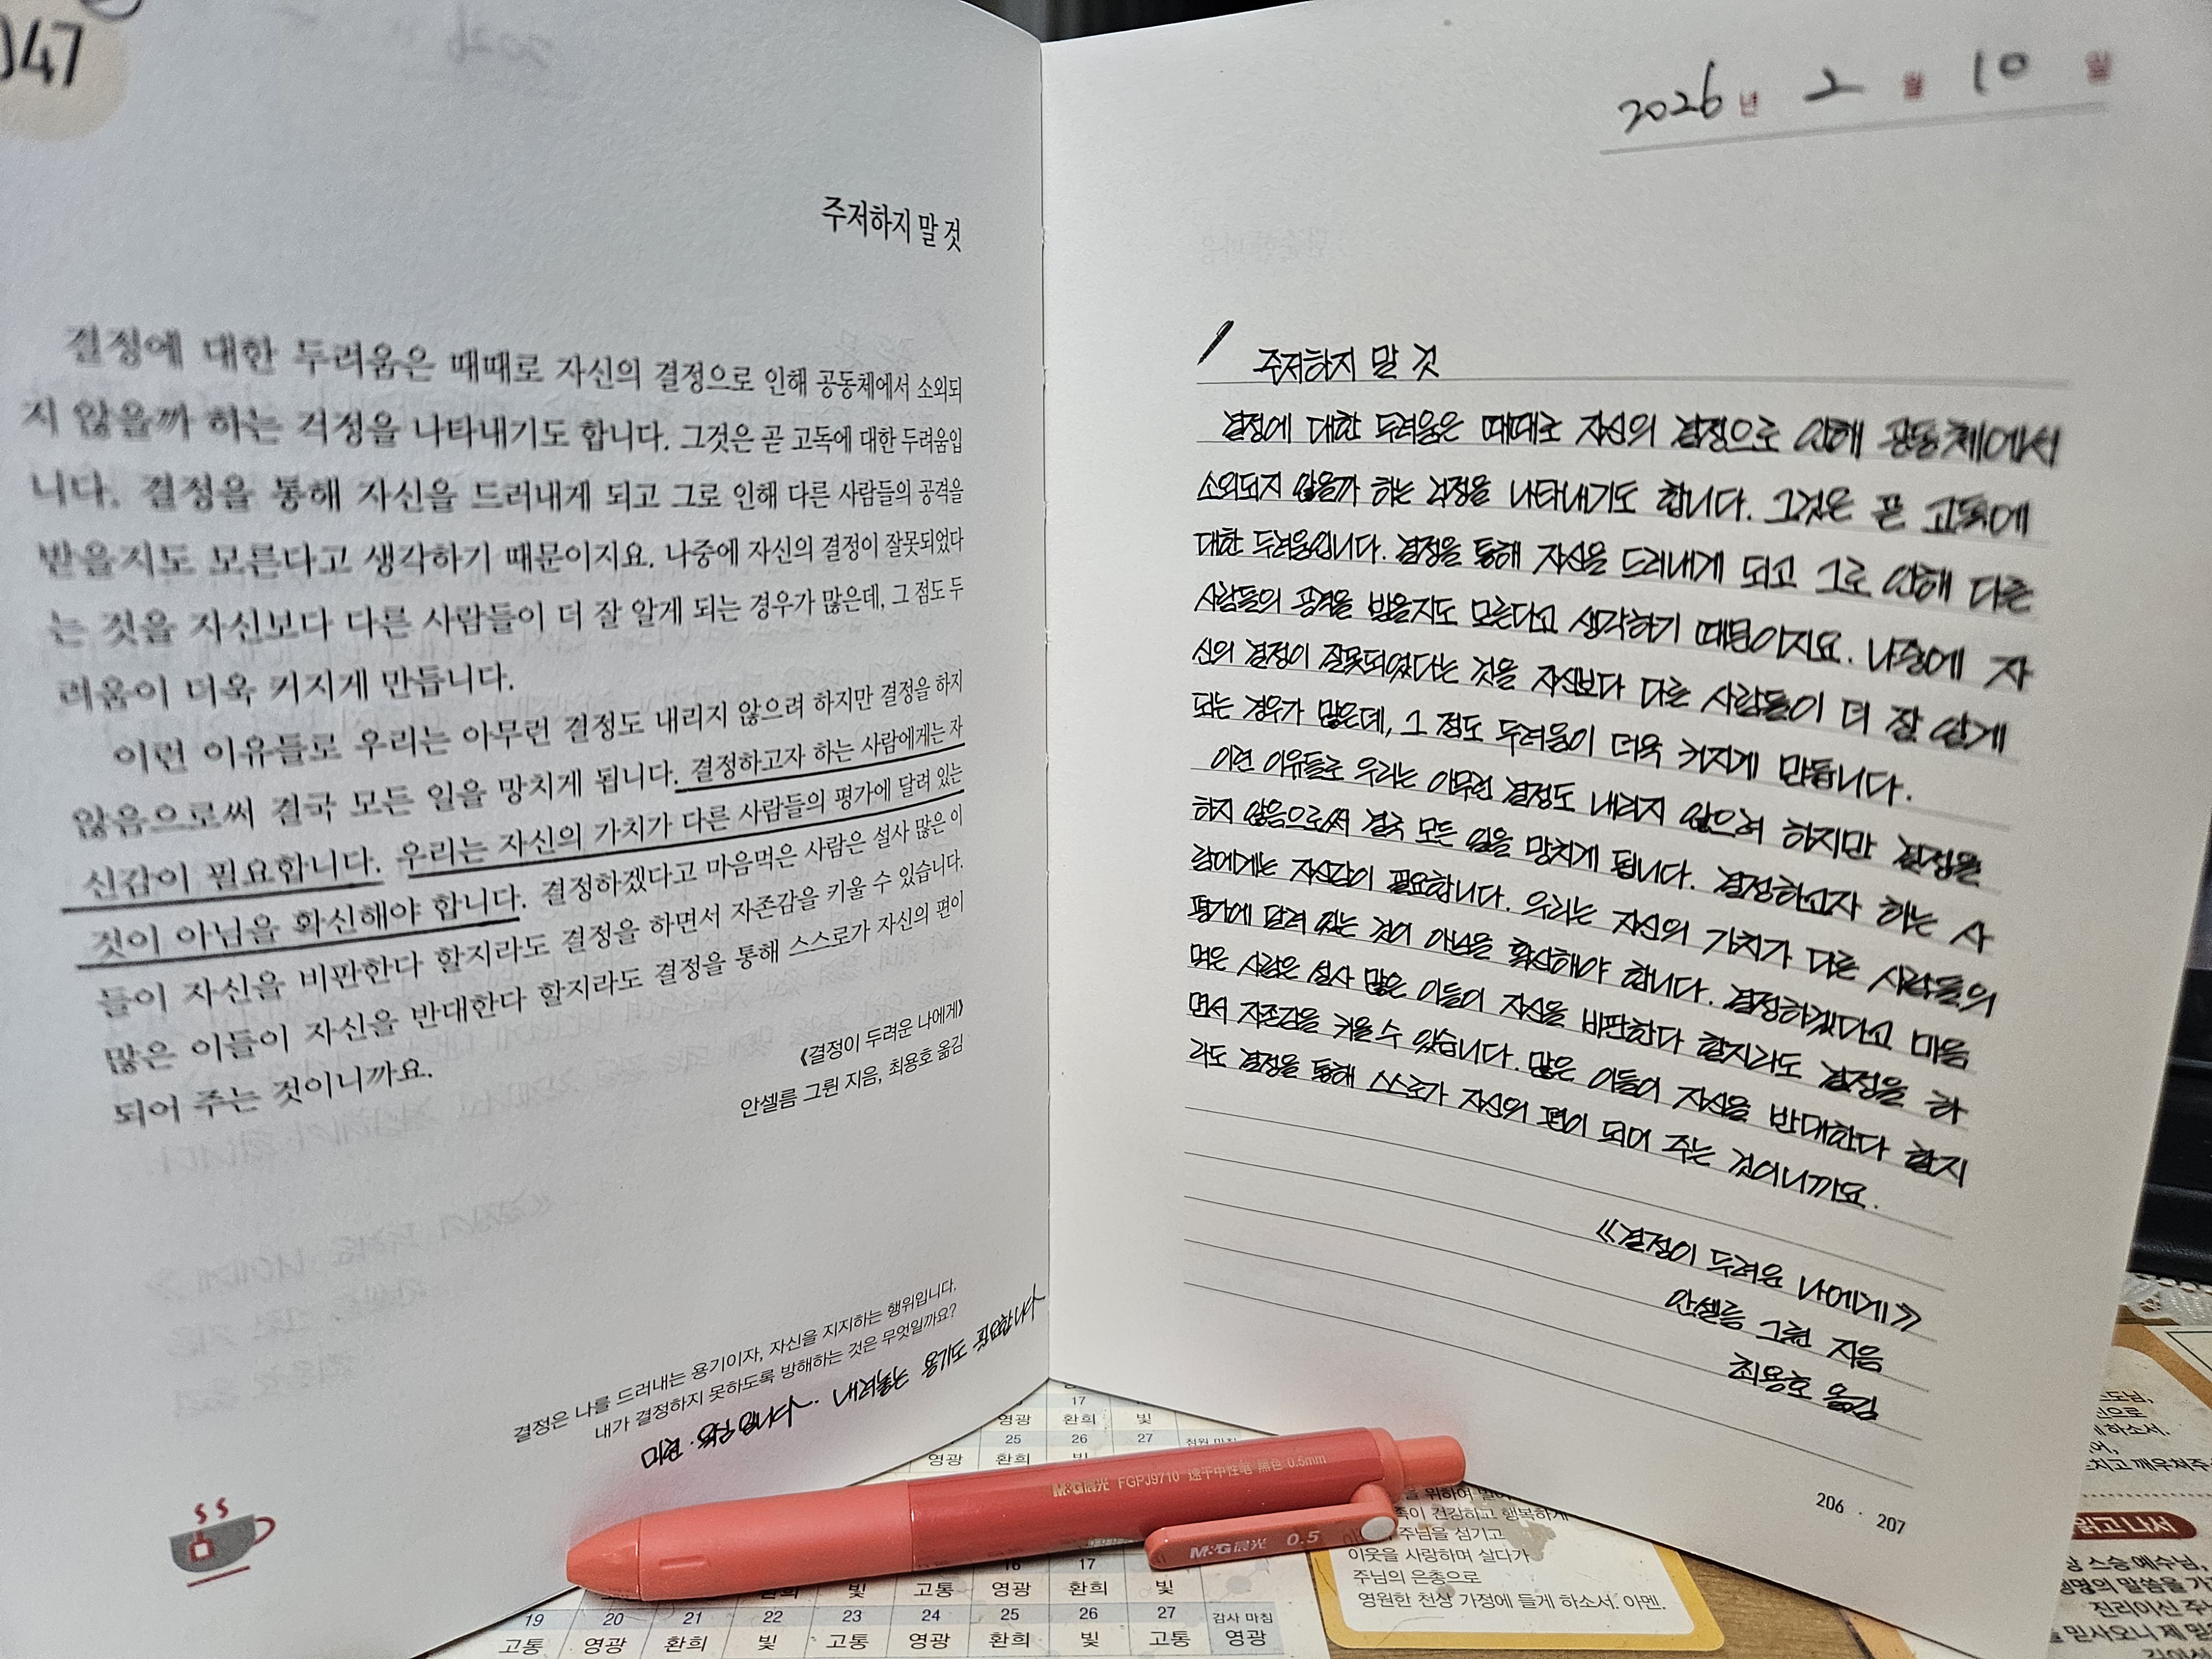 047
주저하지 말 것
결정에 대한 두려움은 때때로 자신의 결정으로 인해 공동체에서 소외되
지 않을까 하는 걱정을 나타내기도 합니다. 그것은 곧 고독에 대한 두려움입
니다. 결정을 통해 자신을 드러내게 되고 그로 인해 다른 사람들의 공격을
받을지도 모른다고 생각하기 때문이지요. 나중에 자신의 결정이 잘못되었다
는 것을 자신보다 다른 사람들이 더 잘 알게 되는 경우가 많은데, 그 점도 두
려움이 더욱 커지게 만듭니다.
이런 이유들로 우리는 아무런 결정도 내리지 않으려 하지만 결정을 하지
않음으로써 결국 모든 일을 망치게 됩니다. 결정하고자 하는 사람에게는 자
신감이 필요합니다. 우리는 자신의 가치가 다른 사람들의 평가에 달려 있는
것이 아님을 확신해야 합니다. 결정하겠다고 마음먹은 사람은 설사 많은 이
들이 자신을 비판한다 할지라도 결정을 하면서 자존감을 키울 수 있습니다.
많은 이들이 자신을 반대한다 할지라도 결정을 통해 스스로가 자신의 편이
되어 주는 것이니까요.
《결정이 두려운 나에게》
안셀름 그륀 지음, 최용호 옮김
결정은 나를 드러내는 용기이자, 자신을 지지하는 행위입니다.
내가 결정하지 못하도록 방해하는 것은 무엇일까요?
2026년 2월 10일
주저하지 말 것
결정에 대한 두려움은 때때로 자신의 결정으로 인해 공동체에서
소외되지 않을까 하는 걱정을 나타내기도 합니다. 그것은 곧 고독에
대한 두려움입니다. 결정을 통해 자신을 드러내게 되고 그로 인해 다른
사람들의 공격을 받을지도 모른다고 생각하기 때문이지요. 나중에 자
신의 결정이 잘못되었다는 것을 자신보다 다른 사람들이 더 잘 알게
되는 경우가 많은데, 그 점도 두려움이 더욱 커지게 만듭니다.
이런 이유들로 우리는 아무런 결정도 내리지 않으려 하지만 결정을
하지 않음으로써 결국 모든 일을 망치게 됩니다. 결정하고자 하는 사
람에게는 자신감이 필요합니다. 우리는 자신의 가치가 다른 사람들의
평가에 달려 있는 것이 아님을 확신해야 합니다. 결정하겠다고 마음
먹은 사람은 설사 많은 이들이 자신을 비판한다 할지라도 결정을 하
면서 자존감을 키울 수 있습니다. 많은 이들이 자신을 반대한다 할지
라도 결정을 통해 스스로가 자신의 편이 되어 주는 것이니까요.
《결정이 두려운 나에게》
안셀름 그륀 지음
최용호 옮김
206 · 207
M&G晨光 FGPJ9710 速干中性笔 黑色 0.5mm
M&G晨光 0.5
17
영광 환희 빛
25 26 27
영광 환희
16 17
빛 고통 영광 환희 빛
19 20 21 22 23 24 25 26 27 감사 마침
고통 영광 환희 빛 고통 영광 환희 빛 고통 영광
건강하고 행복하게
주님을 섬기고
이웃을 사랑하며 살다가
주님의 은총으로
영원한 천상 가정에 들게 하소서. 아멘.
하소서.
읽고 나서
스승 예수님,
말씀을
진리이신
믿사오니 제